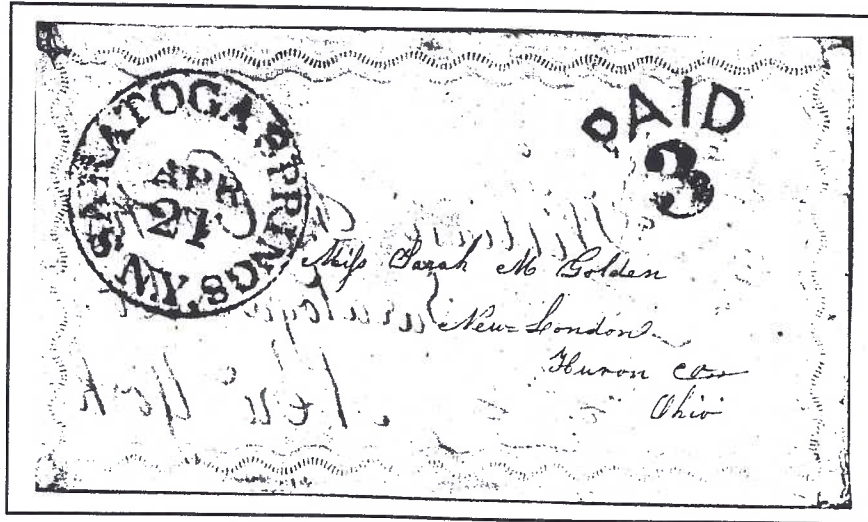 SARATOGA SPRINGS. N.Y.
APR
21
PAID
3
Miss Sarah M Golden
New-London
Huron Co
Ohio
New York